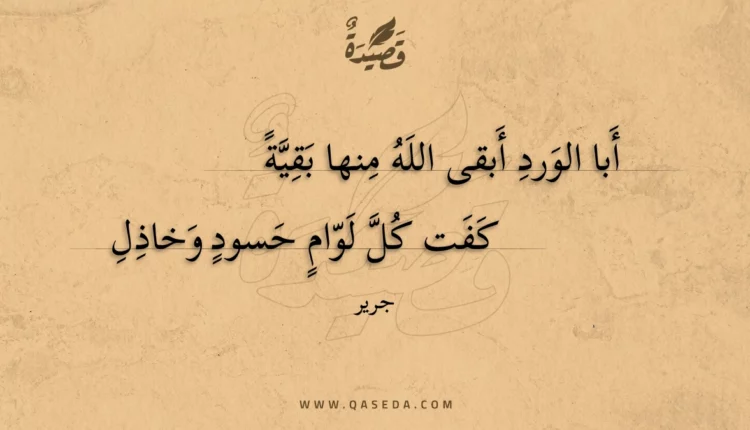 قَصِيْدَةٌ
أَبا الوَردِ أَبقى اللَهُ مِنها بَقِيَّةً
كَفَت كُلَّ لَوّامٍ حَسودٍ وَخاذِلِ
جرير
WWW.QASEDA.COM